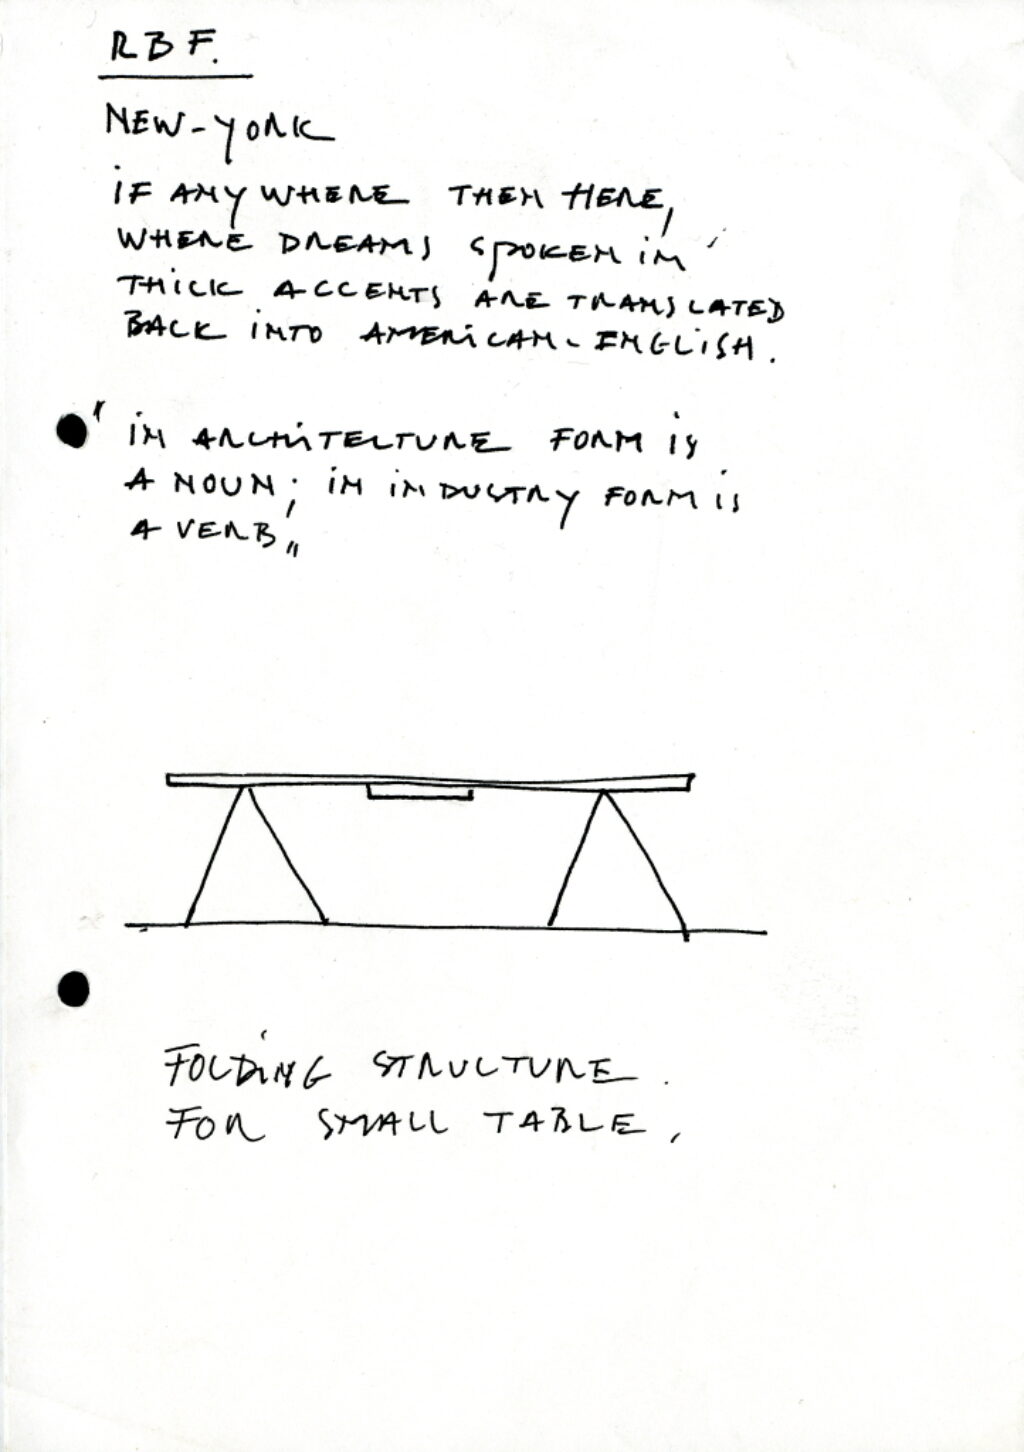 RBF.
NEW-YORK
IF ANYWHERE THEN HERE,
WHERE DREAMS SPOKEN IN
THICK ACCENTS ARE TRANSLATED
BACK INTO AMERICAN-ENGLISH.
"IN ARCHITECTURE FORM IS
A NOUN; IN INDUSTRY FORM IS
A VERB"
FOLDING STRUCTURE.
FOR SMALL TABLE,